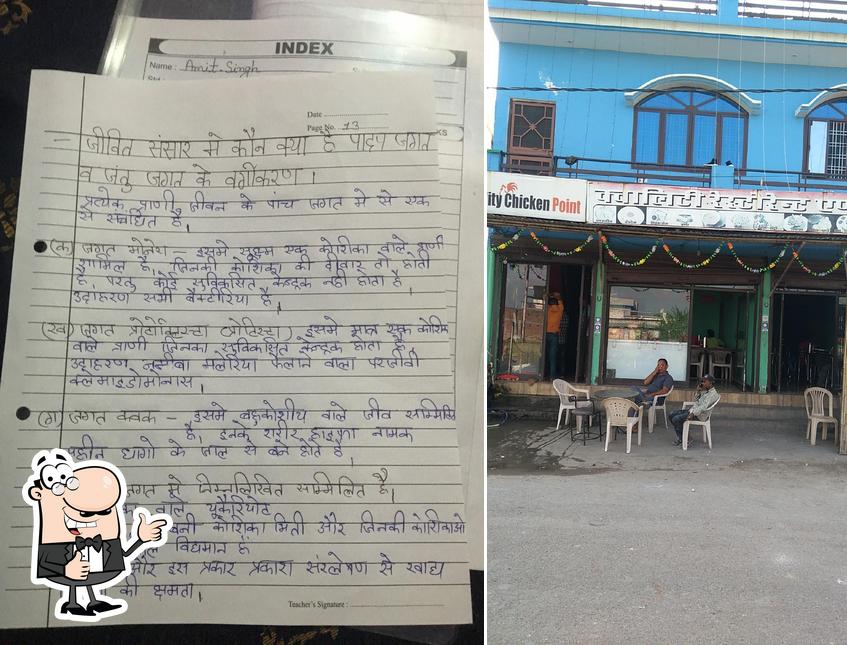 INDEX
Name : Amit Singh
Date
Page No. 13
जीवित संसार मे कौन क्या है पादप जगत
व जंतु जगत के वर्गीकरण ।
प्रत्येक प्राणी जीवन के पांच जगत मे से एक
से संबंधित है,
(क) जगत मोनेरा - इसमे सूक्ष्म एक कोशिका वाले प्राणी
शामिल है, जिनकी कोशिका की दीवार तो होती
है, परंतु कोई सुविकसित केन्द्रक नही होता है
उदाहरण सभी बैक्टीरिया है,
(ख) जगत प्रोटोक्टिस्टा (प्रोटिस्टा) इसमे मात्र एक कोशिका
वाले प्राणी जिनका सुविकसित केन्द्रक होता है,
उदाहरण मलेरिया फैलाने वाला परजीवी
क्लमाइडोमोनास ,
(ग) जगत कवक - इसमे बहुकोशीय वाले जीव सम्मिलित
है, इनके शरीर हाइफा नामक
धागो के जाल से बने होते है
जगत मे निम्नलिखित सम्मिलित है,
वाले यूकैरियोट
बनी कोशिका भित्ती और जिनकी कोशिकाओ
विद्यमान है
और इस प्रकार प्रकाश संश्लेषण से खाद्य
की क्षमता ,
Teacher's Signature :
ity Chicken Point
क्वालिटी रेस्टोरेन्ट एण्ड